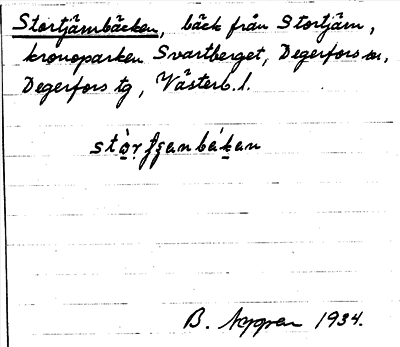 Stortjärnbäcken, bäck från Stortjärn,
kronoparken Svartberget, Degerfors sn,
Degerfors tg, Västerb. l.
B. 1934.